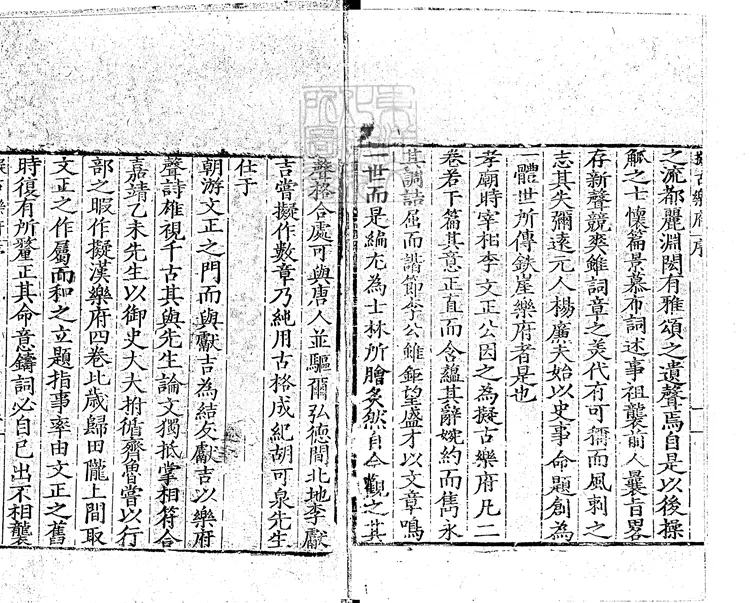 擬古樂府序
之流都麗淵閎有雅頌之遺聲焉自是以後操
觚之士懷篇景慕布詞述事祖襲前人曩旨畧
存新聲競爽雖詞章之美代有可稱而風刺之
志其失彌遠元人楊廉夫始以史事命題創為
一體世所傳鉄崖樂府者是也
孝廟時宰相李文正公因之為擬古樂府凡二
卷若干篇其意正直而含蘊其辭婉約而雋永
其調詰屈而諧節李公雖鉅望盛才以文章鳴
一世而是編尤為士林所膾炙然自今觀之其
聲格合處可與唐人並驅爾弘德間北地李獻
吉嘗擬作數章乃純用古格成紀胡可泉先生
仕于
朝游文正之門而與獻吉為結友獻吉以樂府
聲詩雄視千古其與先生論文獨抵掌相符合
嘉靖乙未先生以御史大夫拊循齊魯嘗以行
部之暇作擬漢樂府四卷比歲歸田隴上間取
文正之作屬而和之立題指事率由文正之舊
時復有所釐正其命意鑄詞必自己出不相襲
擬古樂府序